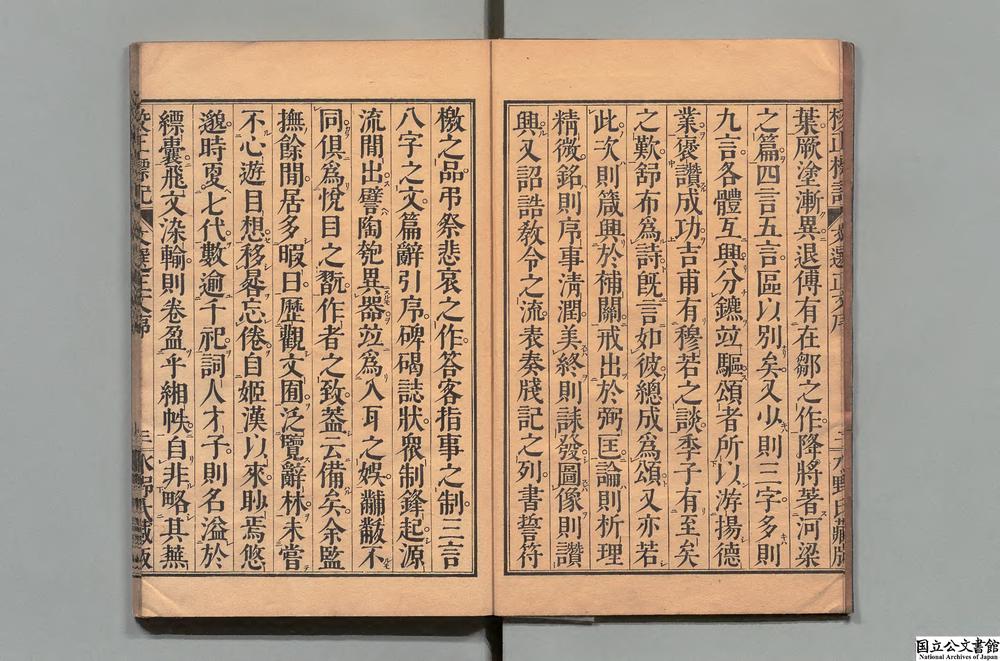 葉厥塗漸異退傅有在鄒之作降將著河梁
之篇四言五言區以別矣又少則三字多則
九言各體互興分鑣竝驅頌者所以游揚德
業褒讚成功吉甫有穆若之談季子有至矣
之歎舒布爲詩旣言如彼總成爲頌又亦若
此次則箴興於補闕戒出於弼匡論則析理
精微銘則序事淸潤美終則誄發圖像則讚
興又詔誥敎令之流表奏牋記之列書誓符
檄之品弔祭悲哀之作答客指事之制三言
八字之文篇辭引序碑碣誌狀衆制鋒起源
流閒出譬陶匏異器竝爲入耳之娛黼黻不
同俱爲悅目之翫作者之致蓋云備矣余監
撫餘閒居多暇日歷觀文囿泛覽辭林未嘗
不心遊目想移晷忘倦自姬漢以來眇焉悠
邈時更七代數逾千祀詞人才子則名溢於
縹囊飛文染翰則卷盈乎緗帙自非略其蕪
国立公文書館
National Archives of Japan